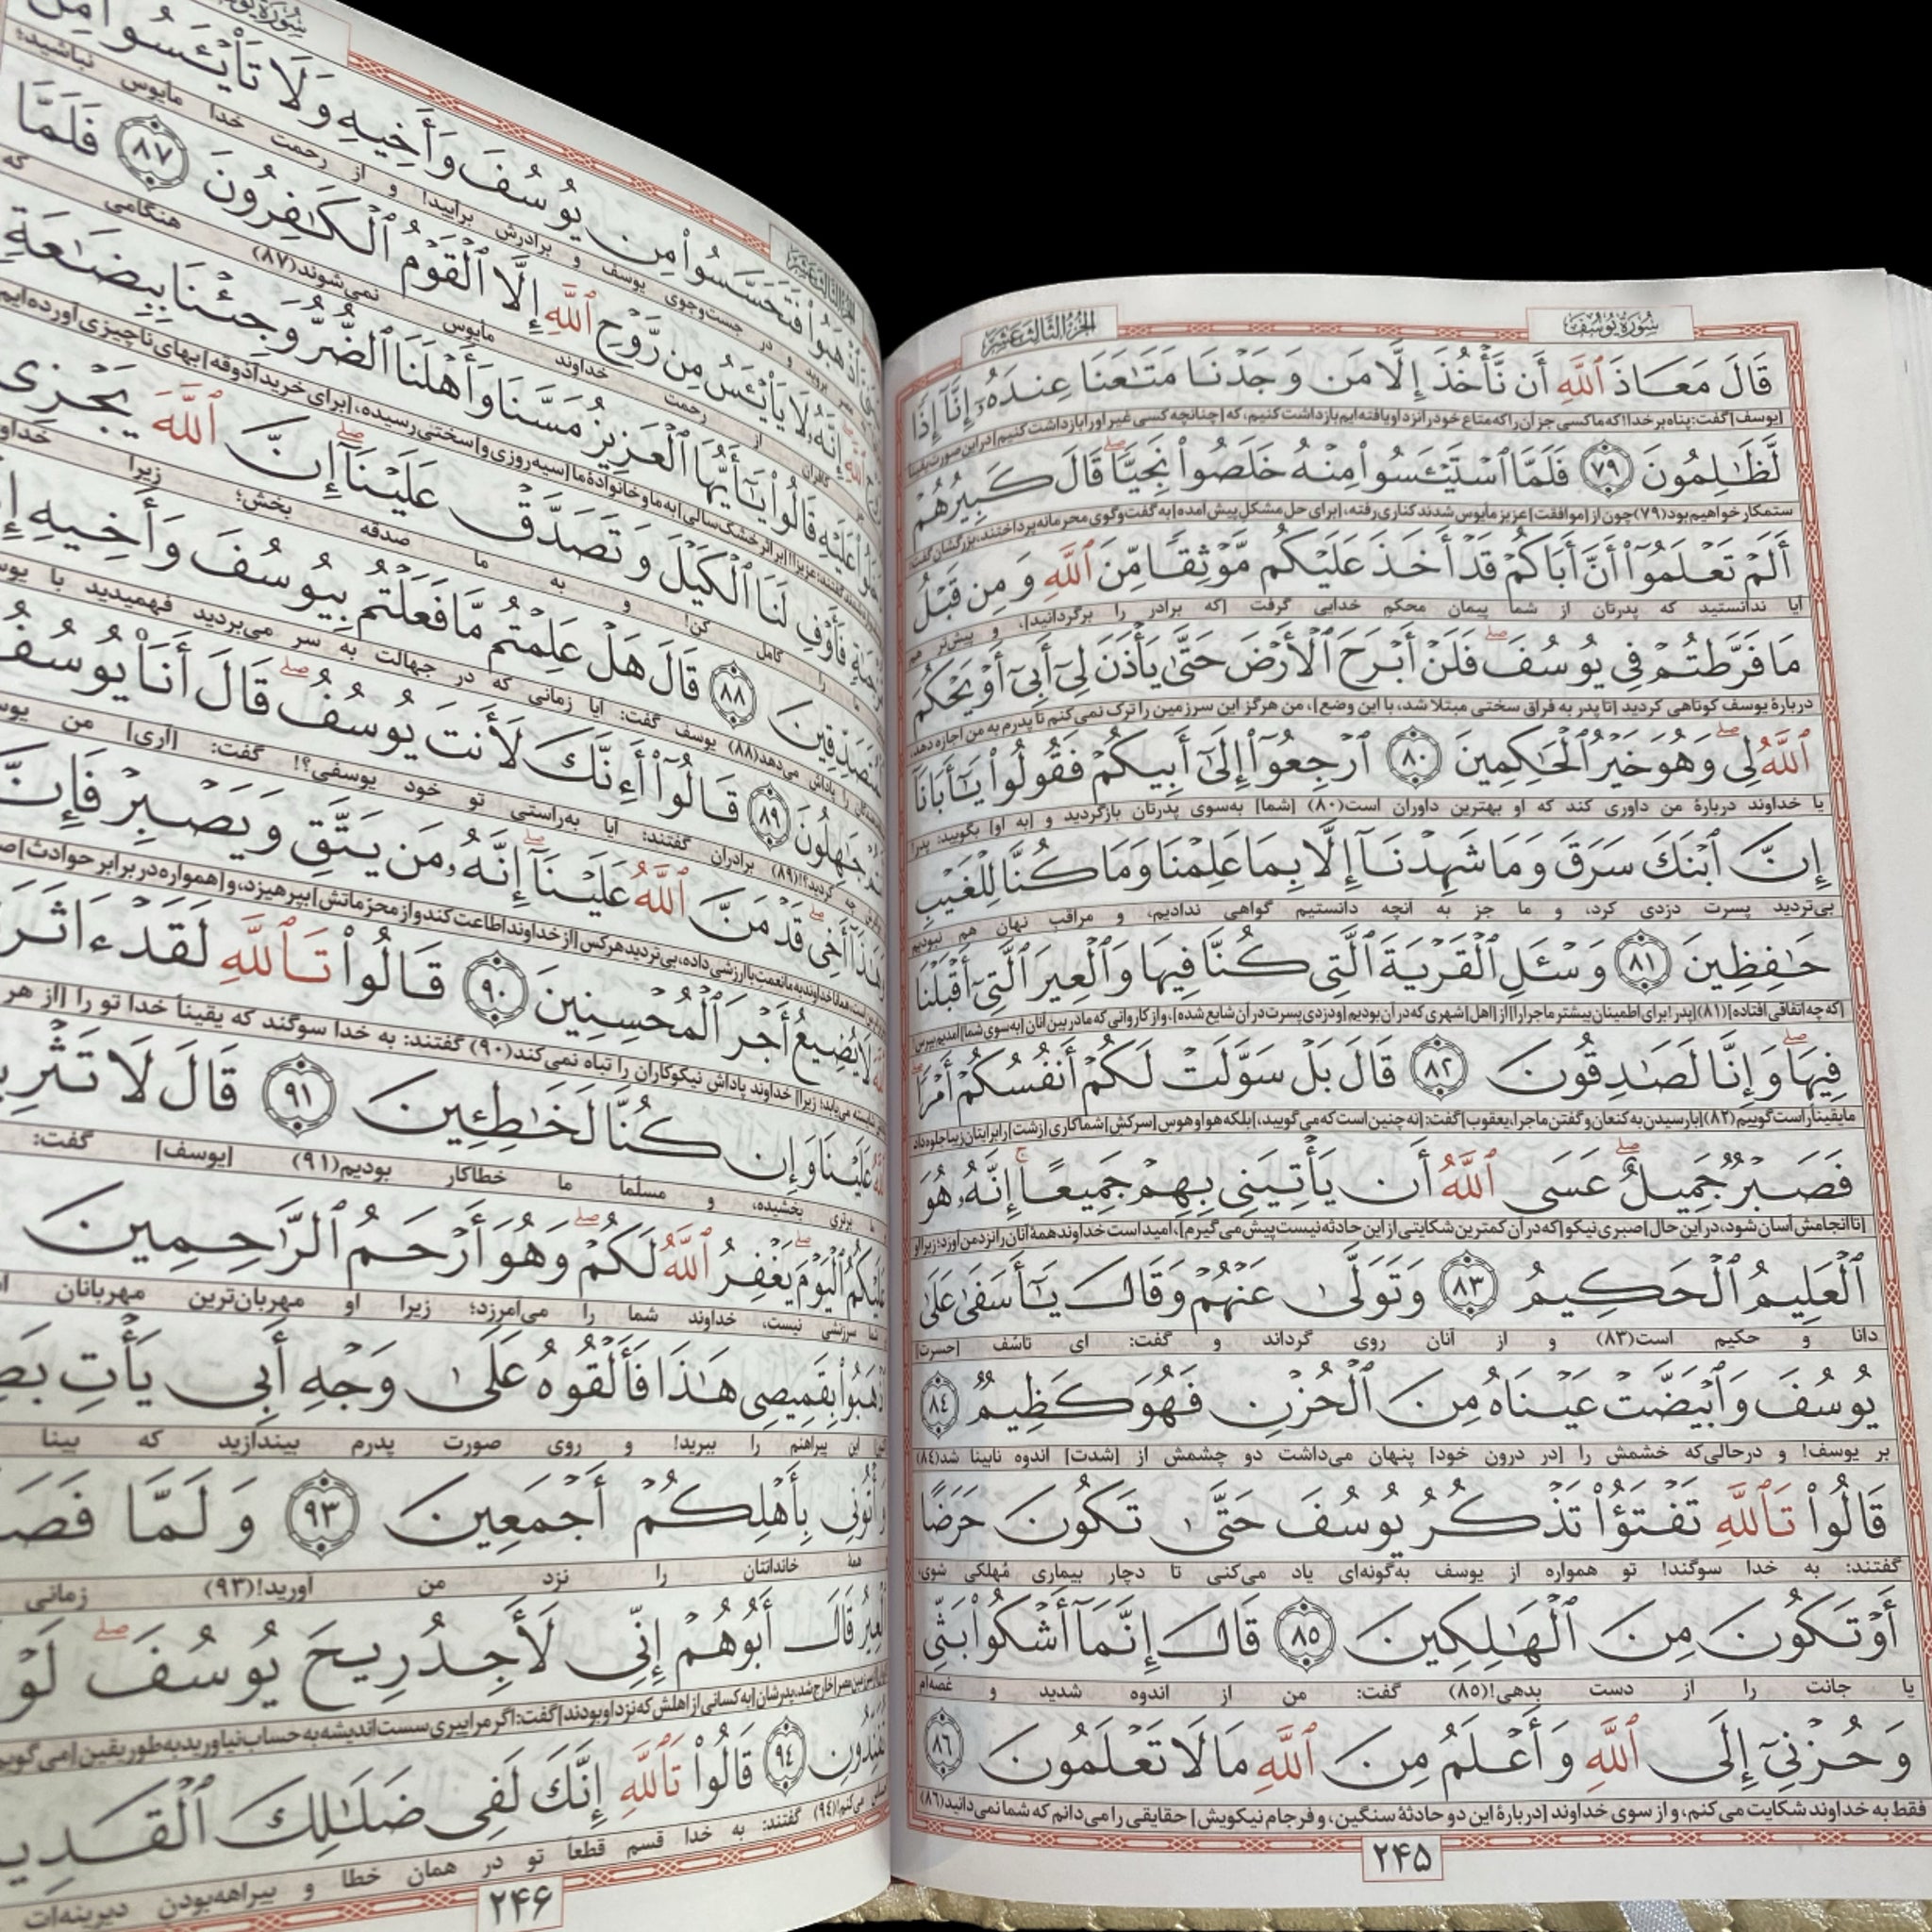 سُورَةُ يُوسُفَ
الجُزءُ الثّالِث عَشَر
قَالَ مَعَاذَ ٱللَّهِ أَن نَّأْخُذَ إِلَّا مَن وَجَدْنَا مَتَـٰعَنَا عِندَهُۥٓ إِنَّآ إِذًا
[یوسف] گفت: پناه بر خدا! که ما کسی جز آن را که متاع خود را نزد او یافته‌ایم بازداشت کنیم، که [چنانچه کسی غیر او را بازداشت کنیم] در این صورت یقیناً
لَّظَـٰلِمُونَ ٧٩ فَلَمَّا ٱسْتَيْـَٔسُوا۟ مِنْهُ خَلَصُوا۟ نَجِيًّا ۖ قَالَ كَبِيرُهُمْ
ستمکار خواهیم بود(٧٩) چون از [موافقت] عزیز مأیوس شدند کناری رفته، [برای حل مشکل پیش آمده] به گفت‌وگوی محرمانه پرداختند، بزرگشان گفت:
أَلَمْ تَعْلَمُوٓا۟ أَنَّ أَبَاكُمْ قَدْ أَخَذَ عَلَيْكُم مَّوْثِقًا مِّنَ ٱللَّهِ وَمِن قَبْلُ
آیا ندانستید که پدرتان از شما پیمان محکم خدایی گرفت [که برادر را برگردانید]، و پیش‌تر هم
مَا فَرَّطتُمْ فِى يُوسُفَ ۖ فَلَنْ أَبْرَحَ ٱلْأَرْضَ حَتَّىٰ يَأْذَنَ لِىٓ أَبِىٓ أَوْ يَحْكُمَ
دربارهٔ یوسف کوتاهی کردید [تا پدر به فراق سختی مبتلا شد، با این وضع]، من هرگز این سرزمین را ترک نمی‌کنم تا پدرم به من اجازه دهد،
ٱللَّهُ لِى ۖ وَهُوَ خَيْرُ ٱلْحَـٰكِمِينَ ٨٠ ٱرْجِعُوٓا۟ إِلَىٰٓ أَبِيكُمْ فَقُولُوا۟ يَـٰٓأَبَانَآ
یا خداوند دربارهٔ من داوری کند که او بهترین داوران است(٨٠) [شما] به‌سوی پدرتان بازگردید و [به او] بگویید: پدر!
إِنَّ ٱبْنَكَ سَرَقَ وَمَا شَهِدْنَآ إِلَّا بِمَا عَلِمْنَا وَمَا كُنَّا لِلْغَيْبِ
بی‌تردید پسرت دزدی کرد، و ما جز به آنچه دانستیم گواهی ندادیم، و مراقب نهان هم نبودیم
حَـٰفِظِينَ ٨١ وَسْـَٔلِ ٱلْقَرْيَةَ ٱلَّتِى كُنَّا فِيهَا وَٱلْعِيرَ ٱلَّتِىٓ أَقْبَلْنَا
[که چه اتفاقی افتاده](٨١) [پدر! برای اطمینان بیشتر ماجرا را] از [اهل] شهری که در آن بودیم [و دزدی پسرت در آن شایع شده]، و از کاروانی که ما در بین آنان [به سوی شما] آمدیم بپرس!
فِيهَا ۖ وَإِنَّا لَصَـٰدِقُونَ ٨٢ قَالَ بَلْ سَوَّلَتْ لَكُمْ أَنفُسُكُمْ أَمْرًا ۖ
ما یقیناً راست گوییم(٨٢) [با رسیدن به کنعان و گفتن ماجرا، یعقوب] گفت: [نه چنین است که می گویید،] بلکه هوا و هوس [سرکش] شما کاری [زشت] را برایتان زیبا جلوه داد
فَصَبْرٌ جَمِيلٌ ۖ عَسَى ٱللَّهُ أَن يَأْتِيَنِى بِهِمْ جَمِيعًا ۚ إِنَّهُۥ هُوَ
[تا انجامش آسان شود، در این حال] صبری نیکو [که در آن کمترین شکایتی از این حادثه نیست پیش می گیرم]، امید است خداوند همهٔ آنان را نزد من آورد؛ زیرا او
ٱلْعَلِيمُ ٱلْحَكِيمُ ٨٣ وَتَوَلَّىٰ عَنْهُمْ وَقَالَ يَـٰٓأَسَفَىٰ عَلَىٰ
دانا و حکیم است(٨٣) و از آنان روی گرداند و گفت: ای تأسّف [حسرت]
يُوسُفَ وَٱبْيَضَّتْ عَيْنَاهُ مِنَ ٱلْحُزْنِ فَهُوَ كَظِيمٌ ٨٤
بر یوسف! و درحالی‌که خشمش را [در درون خود] پنهان می‌داشت دو چشمش از [شدت] اندوه نابینا شد(٨٤)
قَالُوا۟ تَٱللَّهِ تَفْتَؤُا۟ تَذْكُرُ يُوسُفَ حَتَّىٰ تَكُونَ حَرَضًا
گفتند: به خدا سوگند! تو همواره از یوسف به‌گونه‌ای یاد می‌کنی تا دچار بیماری مُهلکی شوی،
أَوْ تَكُونَ مِنَ ٱلْهَـٰلِكِينَ ٨٥ قَالَ إِنَّمَآ أَشْكُوا۟ بَثِّى
یا جانت را از دست بدهی!(٨٥) گفت: من از اندوه شدید و غصه‌ام
وَحُزْنِىٓ إِلَى ٱللَّهِ وَأَعْلَمُ مِنَ ٱللَّهِ مَا لَا تَعْلَمُونَ ٨٦
فقط به خداوند شکایت می‌کنم، و از سوی خداوند [دربارهٔ این دو حادثهٔ سنگین، و فرجام نیکویش] حقایقی را می‌دانم که شما نمی‌دانید(٨٦)
۲۴۵
ٱذْهَبُوا۟ فَتَحَسَّسُوا۟ مِن يُوسُفَ وَأَخِيهِ وَلَا تَا۟يْـَٔسُوا۟ مِن
بروید و در جست‌وجوی یوسف و برادرش برآیید! و از رحمت خدا مأیوس نباشید؛
إِنَّهُۥ لَا يَا۟يْـَٔسُ مِن رَّوْحِ ٱللَّهِ إِلَّا ٱلْقَوْمُ ٱلْكَـٰفِرُونَ ٨٧ فَلَمَّا
کافران از رحمت خداوند مأیوس نمی‌شوند(٨٧) هنگامی که
عَلَيْهِ قَالُوا۟ يَـٰٓأَيُّهَا ٱلْعَزِيزُ مَسَّنَا وَأَهْلَنَا ٱلضُّرُّ وَجِئْنَا بِبِضَـٰعَةٍ
گفتند: عزیزا! [بر اثر خشک‌سالی] به ما و خانوادهٔ ما [سیه‌روزی و] سختی رسیده، [برای خرید آذوقه] بهای ناچیزی آورده‌ایم
فَأَوْفِ لَنَا ٱلْكَيْلَ وَتَصَدَّقْ عَلَيْنَآ ۖ إِنَّ ٱللَّهَ يَجْزِى
را کامل کن! و به ما صدقه بخش؛ زیرا خداوند
ٱلْمُتَصَدِّقِينَ ٨٨ قَالَ هَلْ عَلِمْتُم مَّا فَعَلْتُم بِيُوسُفَ وَأَخِيهِ
را پاداش می‌دهد(٨٨) یوسف گفت: آیا زمانی که در جهالت به سر می‌بردید فهمیدید با
جَـٰهِلُونَ ٨٩ قَالُوٓا۟ أَءِنَّكَ لَأَنتَ يُوسُفُ ۖ قَالَ أَنَا۠ يُوسُفُ
کردید؟!(٨٩) برادران گفتند: آیا به‌راستی تو خود یوسفی؟! گفت: [آری] من
أَخِى ۖ قَدْ مَنَّ ٱللَّهُ عَلَيْنَآ ۖ إِنَّهُۥ مَن يَتَّقِ وَيَصْبِرْ فَإِنَّ
خداوند به ما نعمت باارزشی داده، بی‌تردید هرکس [از خداوند اطاعت کند و از محرّماتش] بپرهیزد، و [همواره در برابر حوادث]
لَا يُضِيعُ أَجْرَ ٱلْمُحْسِنِينَ ٩٠ قَالُوا۟ تَٱللَّهِ لَقَدْ ءَاثَرَ
خداوند پاداش نیکوکاران را تباه نمی‌کند(٩٠) گفتند: به خدا سوگند که یقیناً خدا تو را [از هر
عَلَيْنَا وَإِن كُنَّا لَخَـٰطِـِٔينَ ٩١ قَالَ لَا
برتری بخشیده، و مسلّماً ما خطاکار بودیم(٩١) [یوسف] گفت:
عَلَيْكُمُ ٱلْيَوْمَ ۖ يَغْفِرُ ٱللَّهُ لَكُمْ ۖ وَهُوَ أَرْحَمُ ٱلرَّٰحِمِينَ
سرزنشی نیست، خداوند شما را می‌آمرزد؛ زیرا او مهربان‌ترین مهربانان
ٱذْهَبُوا۟ بِقَمِيصِى هَـٰذَا فَأَلْقُوهُ عَلَىٰ وَجْهِ أَبِى يَأْتِ
این پیراهنم را ببرید! و روی صورت پدرم بیندازید که بینا
بِأَهْلِكُمْ أَجْمَعِينَ ٩٣ وَلَمَّا
همهٔ خاندانتان را نزد من آورید!(٩٣) زمانی
قَالَ أَبُوهُمْ إِنِّى لَأَجِدُ رِيحَ يُوسُفَ ۖ لَوْ
خارج شد، پدرشان [به کسانی از اهلش که نزد او بودند] گفت: اگر مرا پیری سست‌اندیشه به حساب نیاورید به‌طور یقین
تُفَنِّدُونِ ٩٤ قَالُوا۟ تَٱللَّهِ إِنَّكَ لَفِى ضَلَـٰلِكَ ٱلْقَدِيمِ
می‌کنم!(٩٤) گفتند: به خدا قسم قطعاً تو در همان خطا و بیراهه‌بودن دیرینه‌ات
۲۴۶